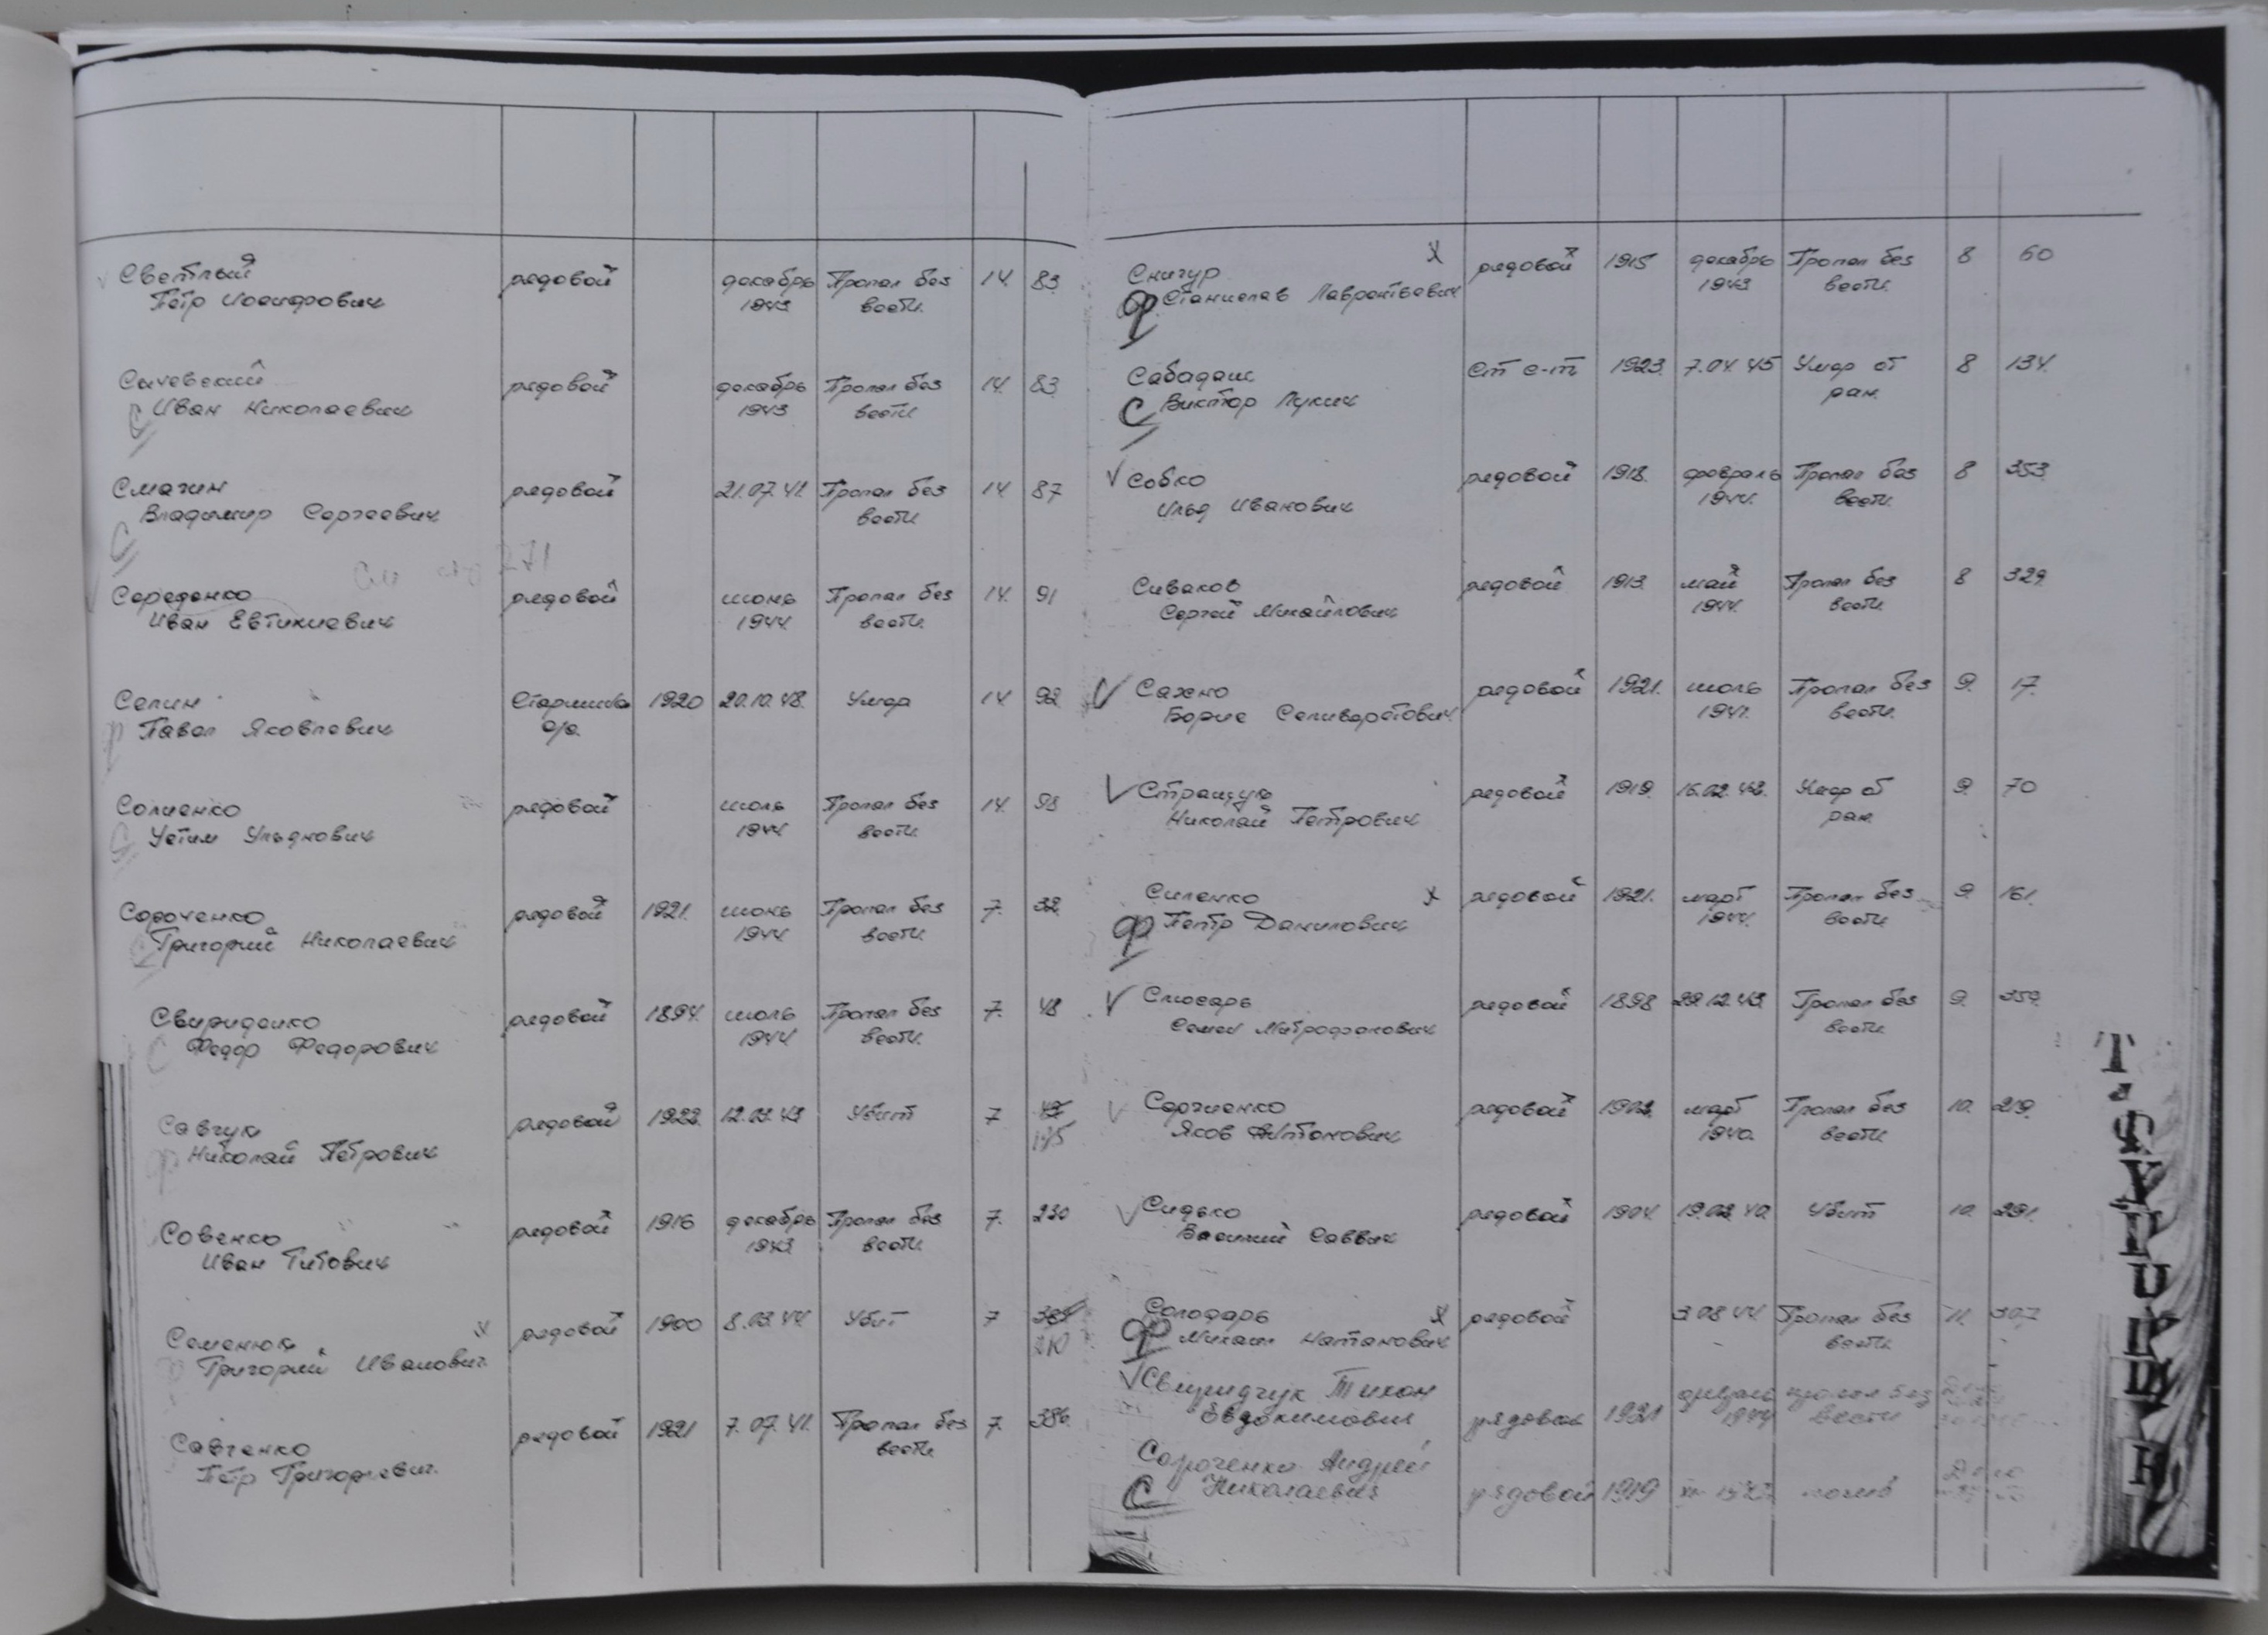 Светлый рядовой декабрь Пропал без 14 83
Петр Иосифович 1943 вести.
Сичевский рядовой декабрь Пропал без 14. 83
С Иван Николаевич 1943 вести
Смагин рядовой 21.07.41. Пропал без 14 87
Владимир Сергеевич вести
С
См стр 271
Середенко рядовой июнь Пропал без 14. 91
Иван Евтихиевич 1944. вести.
Селин Старшина 1920 20.10.48. Умер 14 92
ф Павел Яковлевич
Солиенко рядовой июль Пропал без 14.
С Устим Ульянович 1944 вести
Сороченко рядовой 1921. июнь Пропал без 7. 32
С Григорий Николаевич 1944 вести.
Свириденко рядовой 1894. июль Пропал без 7. 48
С Федор Федорович 1944 вести.
Савчук рядовой 1922. 12.03.43 Убит 7
ф Николай Петрович
Совенко рядовой 1916 декабрь Пропал без 7. 230
Иван Титович 1943 вести.
Семенюк х рядовой 1900 8.03.44 Убит 7
ф Григорий Иванович 210
Савченко рядовой 1921 7.07.41. Пропал без 7. 386
Петр Григорьевич. вести.
Снигур х рядовой 1915 декабрь Пропал без 8 60
ф Станислав Лаврентьевич 1943 вести.
Сабадаш Ст с-т 1923. 7.04.45 Умер от 8 134.
С Виктор Лукич ран.
Собко рядовой 1918. февраль Пропал без 8 353
Илья Иванович 1944. вести.
Сиваков рядовой 1913. май Пропал без 8 329.
Сергей Михайлович 1944. вести
Сахно рядовой 1921. июль Пропал без 9. 17.
Борис Селиверстович 1941. вести.
Стращук рядовой 1919. 16.02.43. Умер от 9 70
Николай Петрович ран.
Силенко х рядовой 1921. март Пропал без 9. 161.
ф Петр Данилович 1944. вести
Слюсарь рядовой 1898 29.12.43 Пропал без 9. 359.
Семен Митрофанович вести
Сергиенко рядовой 1902. март Пропал без 10. 219.
Яков Антонович 1940. вести
Сидько рядовой 1904. 19.02.40. Убит 10. 291.
Василий Саввич
Солодарь х рядовой 3.08.44 Пропал без 11. 307
ф Михаил Натанович вести.
Свиридчук Тихон февраль пропал без
Евдокимович рядовой 1921 1944 вести
Сороченко Андрей
С Николаевич рядовой 1919 погиб